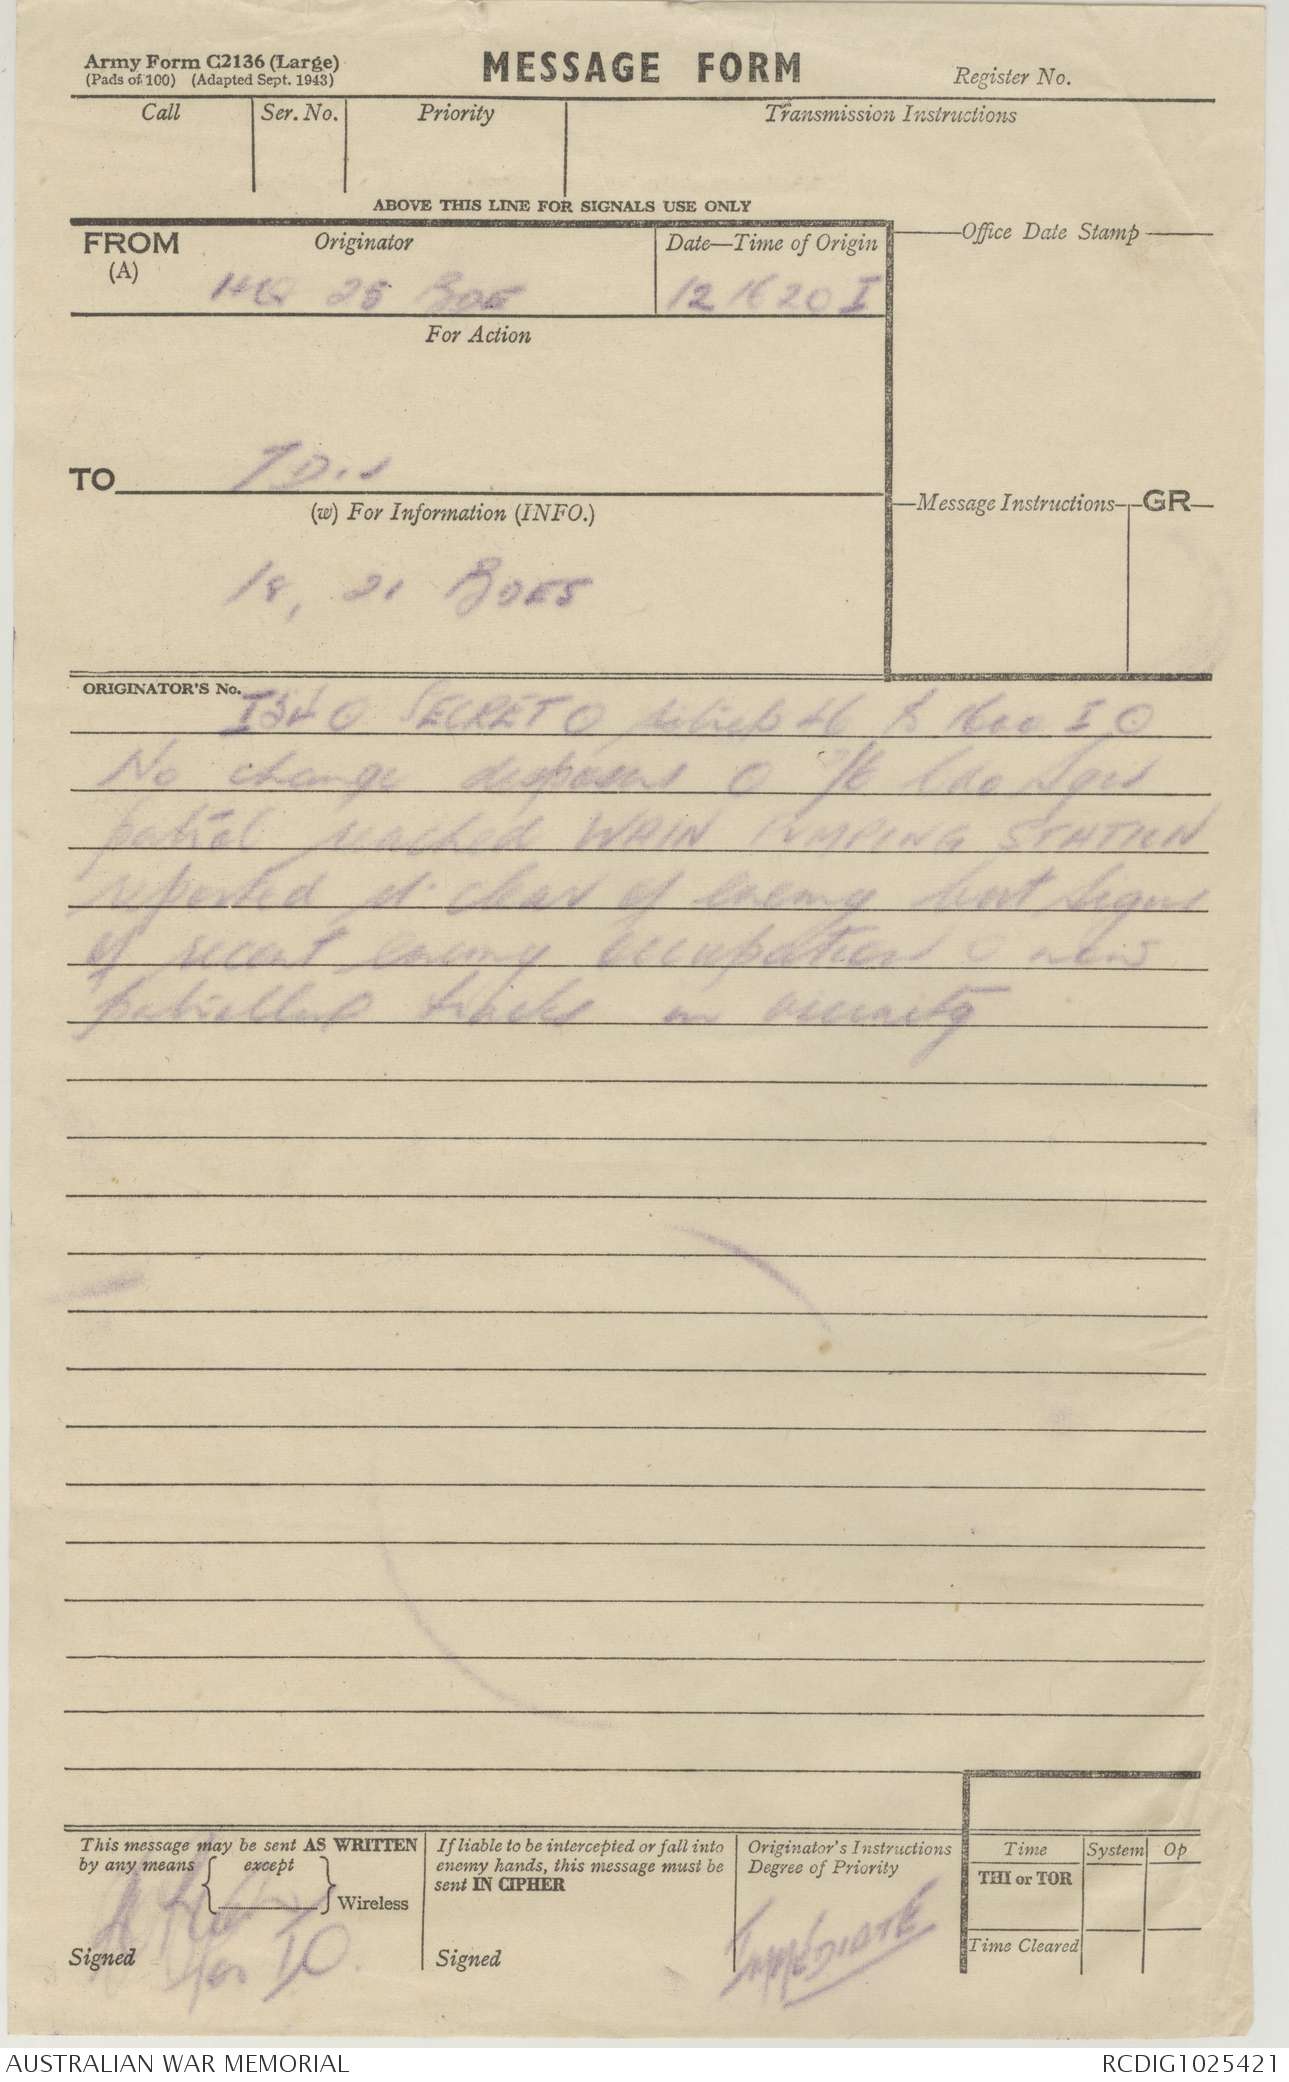 Army Form C2136 (Large)
(Pads of 100) (Adapted Sept. 1943)
MESSAGE FORM
Register No.
Call
Ser. No.
Priority
Transmission Instructions
ABOVE THIS LINE FOR SIGNALS USE ONLY
FROM
(A)
Originator
Date—Time of Origin
Office Date Stamp
HQ 25 BDE
121620 I
For Action
TO
7 Div
(w) For Information (INFO.)
Message Instructions
GR
18, 21 BDES
ORIGINATOR'S No.
O SECRET O sitrep 46 to 1600 I O
No change O
patrol reached WAIN PUMPING STATION
reported it clear of enemy but signs
of recent enemy occupation O now
patrolling tracks in vicinity
This message may be sent AS WRITTEN
by any means { except } Wireless
Signed
for IO.
If liable to be intercepted or fall into
enemy hands, this message must be
sent IN CIPHER
Signed
Originator's Instructions
Degree of Priority
IMMEDIATE
Time
System
Op
THI or TOR
Time Cleared
AUSTRALIAN WAR MEMORIAL
RCDIG1025421